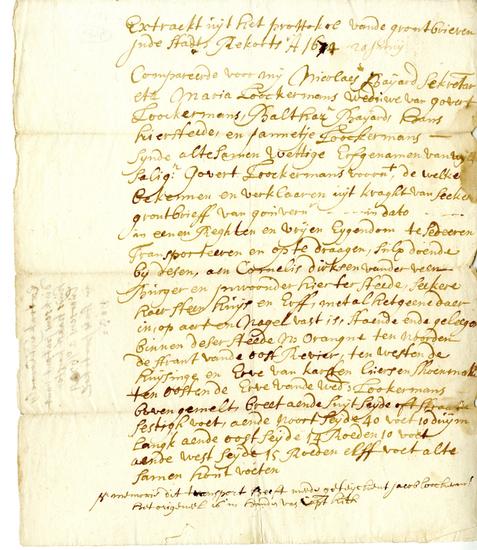 Extrackt uijt het prottekol vande grontbrieven
Inde Stadts Rekorts A° 1674 20 Junij
Compareerde voor mij Nicolaes Bayard Sekretar
etc Maria Loockermans Weduwe van govert
Loockermans, Balthar Bayard, Hans
kierstede en Jannetje Loockermans
synde altesamen wettige Erfgenamen van wijl
salig Govert Loockermans voornt, de welke
bekennen en verklaaren uijt kraght van seeker
grontbrieff van gouvern in dato
in eenen Reghten en vrijen Eygendom te sedeeren
Transporteeren en op te draagen, sulx doende
by desen, aen Cornelis dirksen vander veen
Burger en inwoonder hier ter stede, seekere
haer steen Huijs en Erff, met al hetgeene daer
in, op aert en Nagel vast is, staende ende geleegen
binnen deser steede N: Orangne ten Noorden
de strant vande oost Revier, ten westen de
Huysinge en Erve van karsten Luersen schoenmaker
ten oosten de Erve vande wed: Loockermans
bovengemelt, breet aende suijt seyde oft straet
sestigh voet, aende Noort seyde 40 voet 10 duijm
Langk aende oost seyde 14 Roeden 10 voet
aende west seyde 15 Roeden elff voet alte
samen hont voeten
pr memorie dit transport heeft mede geteijckent Jacob loockerm
het origeneel is in handen van Capt kidd